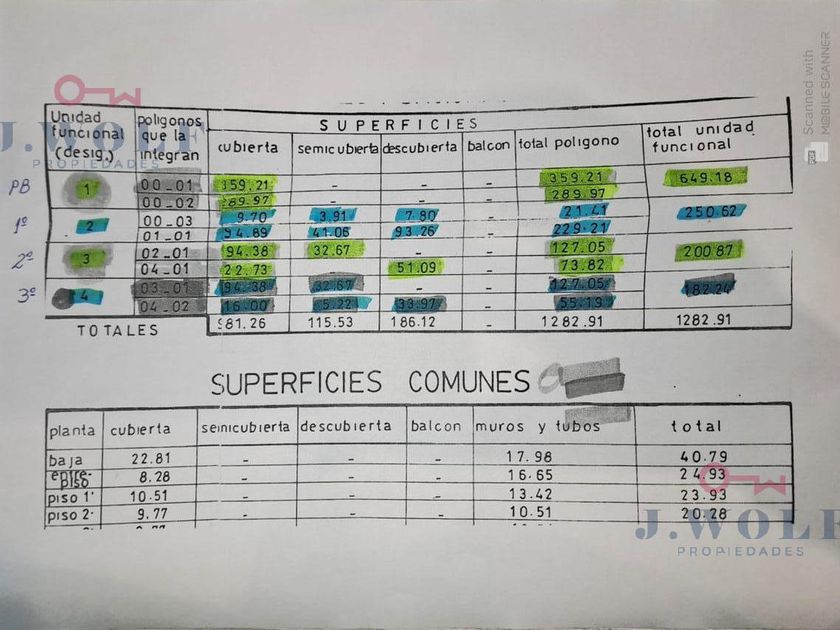 Scanned with
MOBILE SCANNER
J.WOLF
PROPIEDADES
Unidad funcional (desig.) | poligonos que la integran | SUPERFICIES | total unidad funcional
cubierta | semicubierta | descubierta | balcon | total poligono
PB 1 | 00_01 | 359.21 | - | - | - | 359.21 | 649.18
00_02 | 289.97 | - | - | - | 289.97
1º 2 | 00_03 | 9.70 | 3.91 | 7.80 | - | 21.41 | 250.62
01_01 | 94.89 | 41.06 | 93.26 | - | 229.21
2º 3 | 02_01 | 94.38 | 32.67 | - | - | 127.05 | 200.87
04_01 | 22.73 | - | 51.09 | - | 73.82
3º 4 | 03_01 | 94.38 | 32.67 | - | - | 127.05 | 182.24
04_02 | 16.00 | 5.22 | 33.97 | - | 55.19
TOTALES | 981.26 | 115.53 | 186.12 | - | 1282.91 | 1282.91
SUPERFICIES COMUNES
planta | cubierta | semicubierta | descubierta | balcon | muros y tubos | total
baja | 22.81 | - | - | - | 17.98 | 40.79
entre-piso | 8.28 | - | - | - | 16.65 | 24.93
piso 1º | 10.51 | - | - | - | 13.42 | 23.93
piso 2º | 9.77 | - | - | - | 10.51 | 20.28
J.WOLF
PROPIEDADES